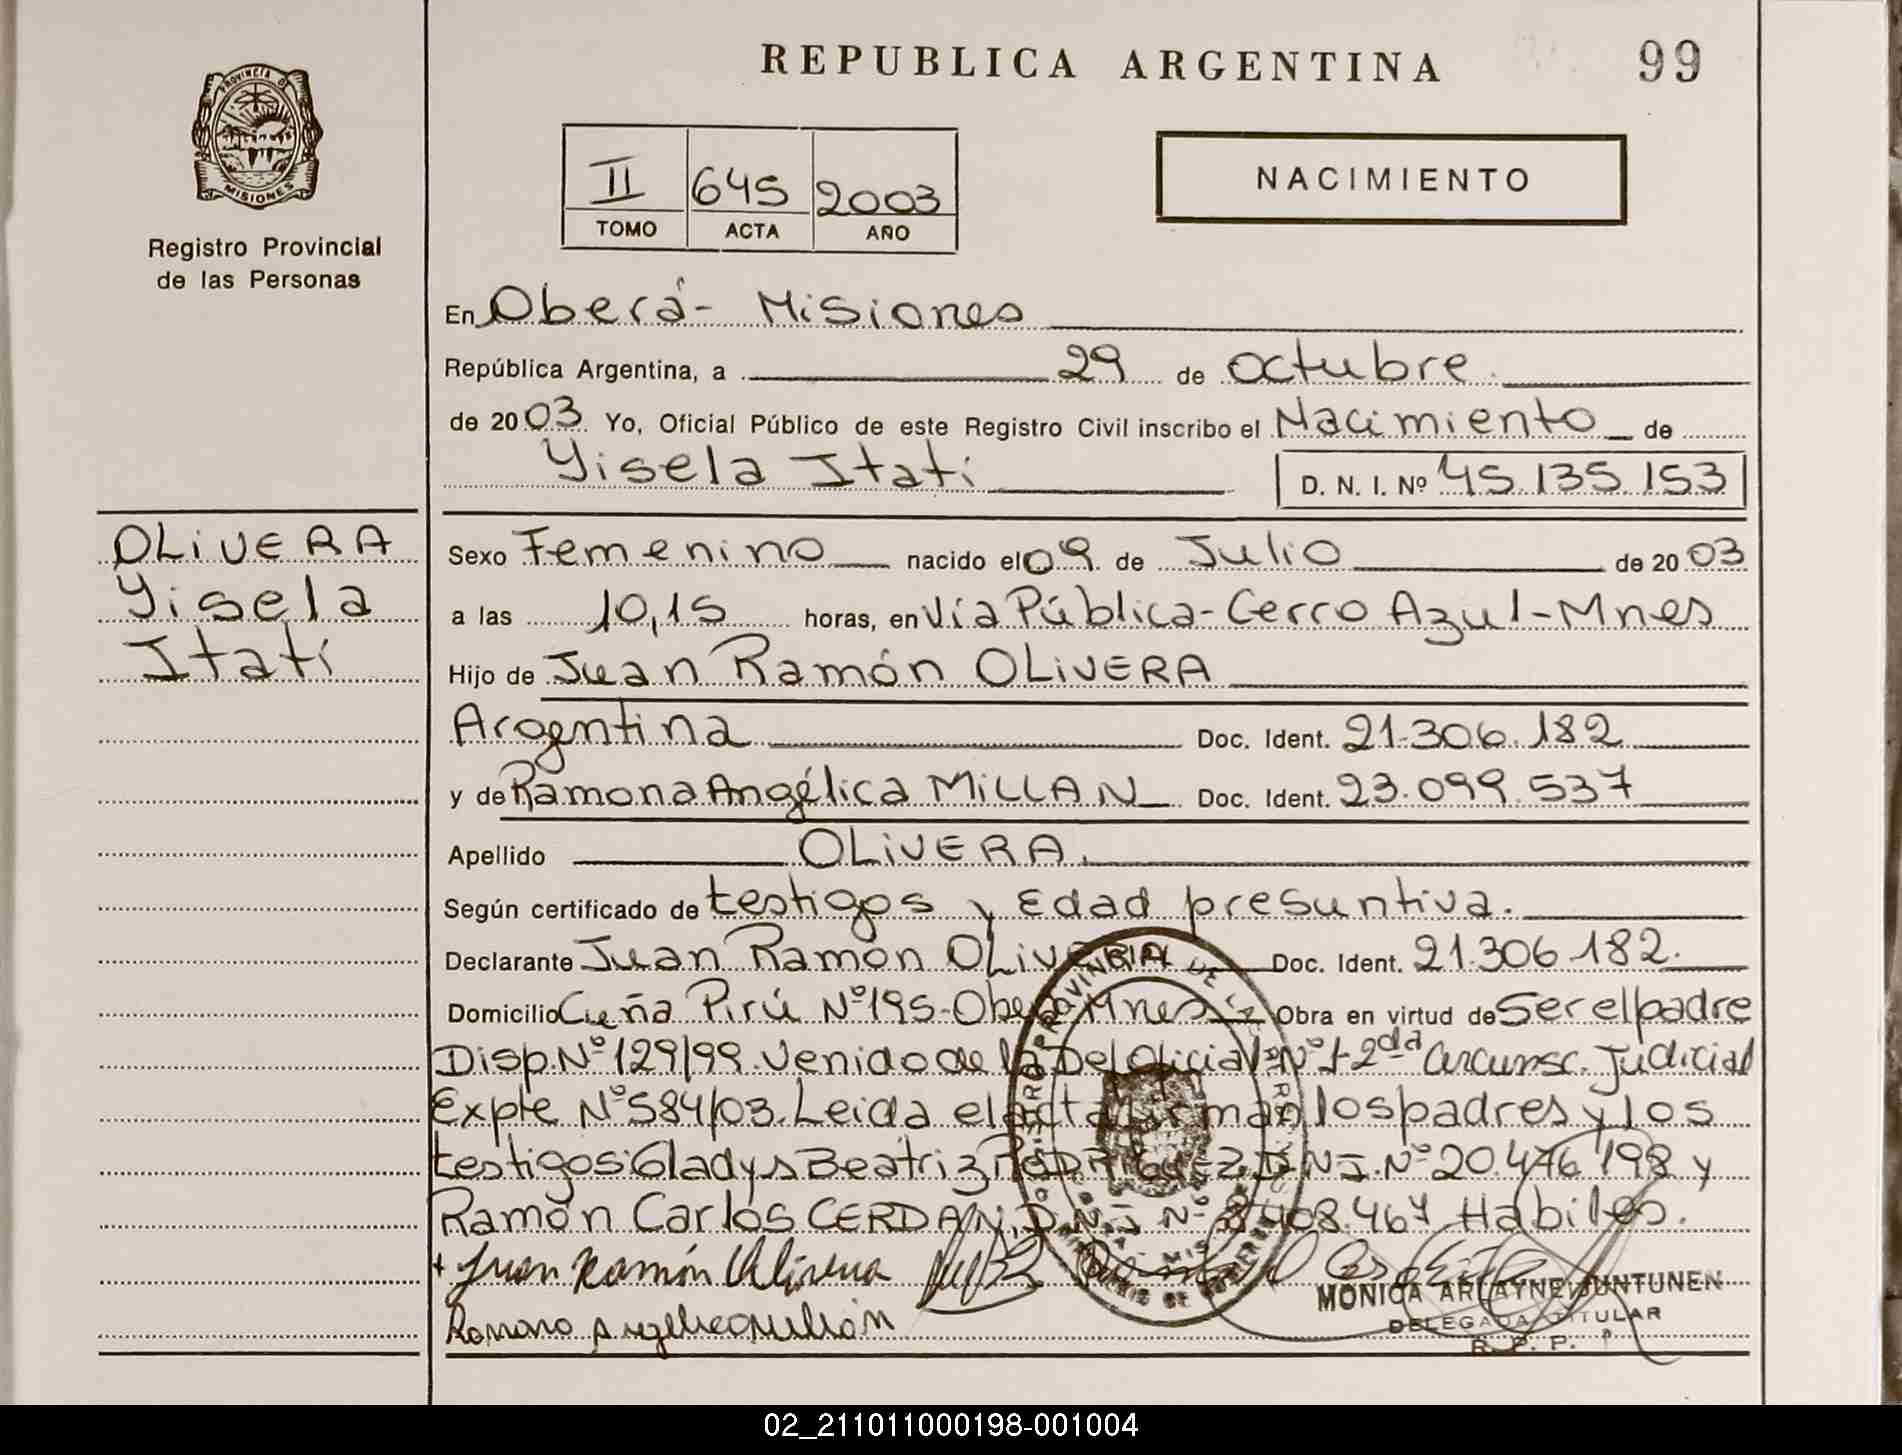 REPUBLICA ARGENTINA
99
PROVINCIA DE
MISIONES
Registro Provincial
de las Personas
II 645 2003
TOMO ACTA AÑO
NACIMIENTO
En Oberá- Misiones
República Argentina, a 29 de octubre
de 2003 Yo, Oficial Público de este Registro Civil inscribo el Nacimiento de
Yisela Itatí D. N. I. Nº 45.135.153
OLIVERA
Yisela
Itatí
Sexo Femenino nacido el 09 de Julio de 2003
a las 10,15 horas, en Vía Pública-Cerro Azul-Mnes
Hijo de Juan Ramón OLIVERA
Argentina Doc. Ident. 21.306.182
y de Ramona Angélica MILLAN Doc. Ident. 23.099.537
Apellido OLIVERA.
Según certificado de testigos y Edad presuntiva.
Declarante Juan Ramón OLIVERA Doc. Ident. 21.306.182.
Domicilio Cuña Pirú Nº195-Oberá Mnes Obra en virtud de Ser el padre
Disp.Nº129/99.Venido de la Def.Oficial Nº1-2da Circunsc. Judicial
Expte Nº584/03. Leida el acta firman los padres y los
testigos: Gladys Beatriz RODRIGUEZ D.N.I. Nº20.476.198 y
Ramón Carlos CERDAN, D.N.I Nº 8.408.467 Habiles.
Juan Ramón Olivera
MONICA ARLAYNE JUNTUNEN
DELEGADA TITULAR
R. P. P.
Ramona Angelica Millán
02_211011000198-001004